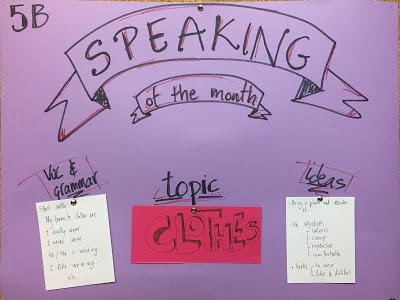 5B
SPEAKING
of the month
Voc &
grammar
topic
ideas
CLOTHES
Start with:
My favourite clothes are...
I usually wear
I never wear
He/She is wearing...
I like wearing...
etc.
- Bring a photo and describe
it.
- Use adjectives
colours
cheap
expensive
comfortable
- Verbs: to wear
likes & dislikes